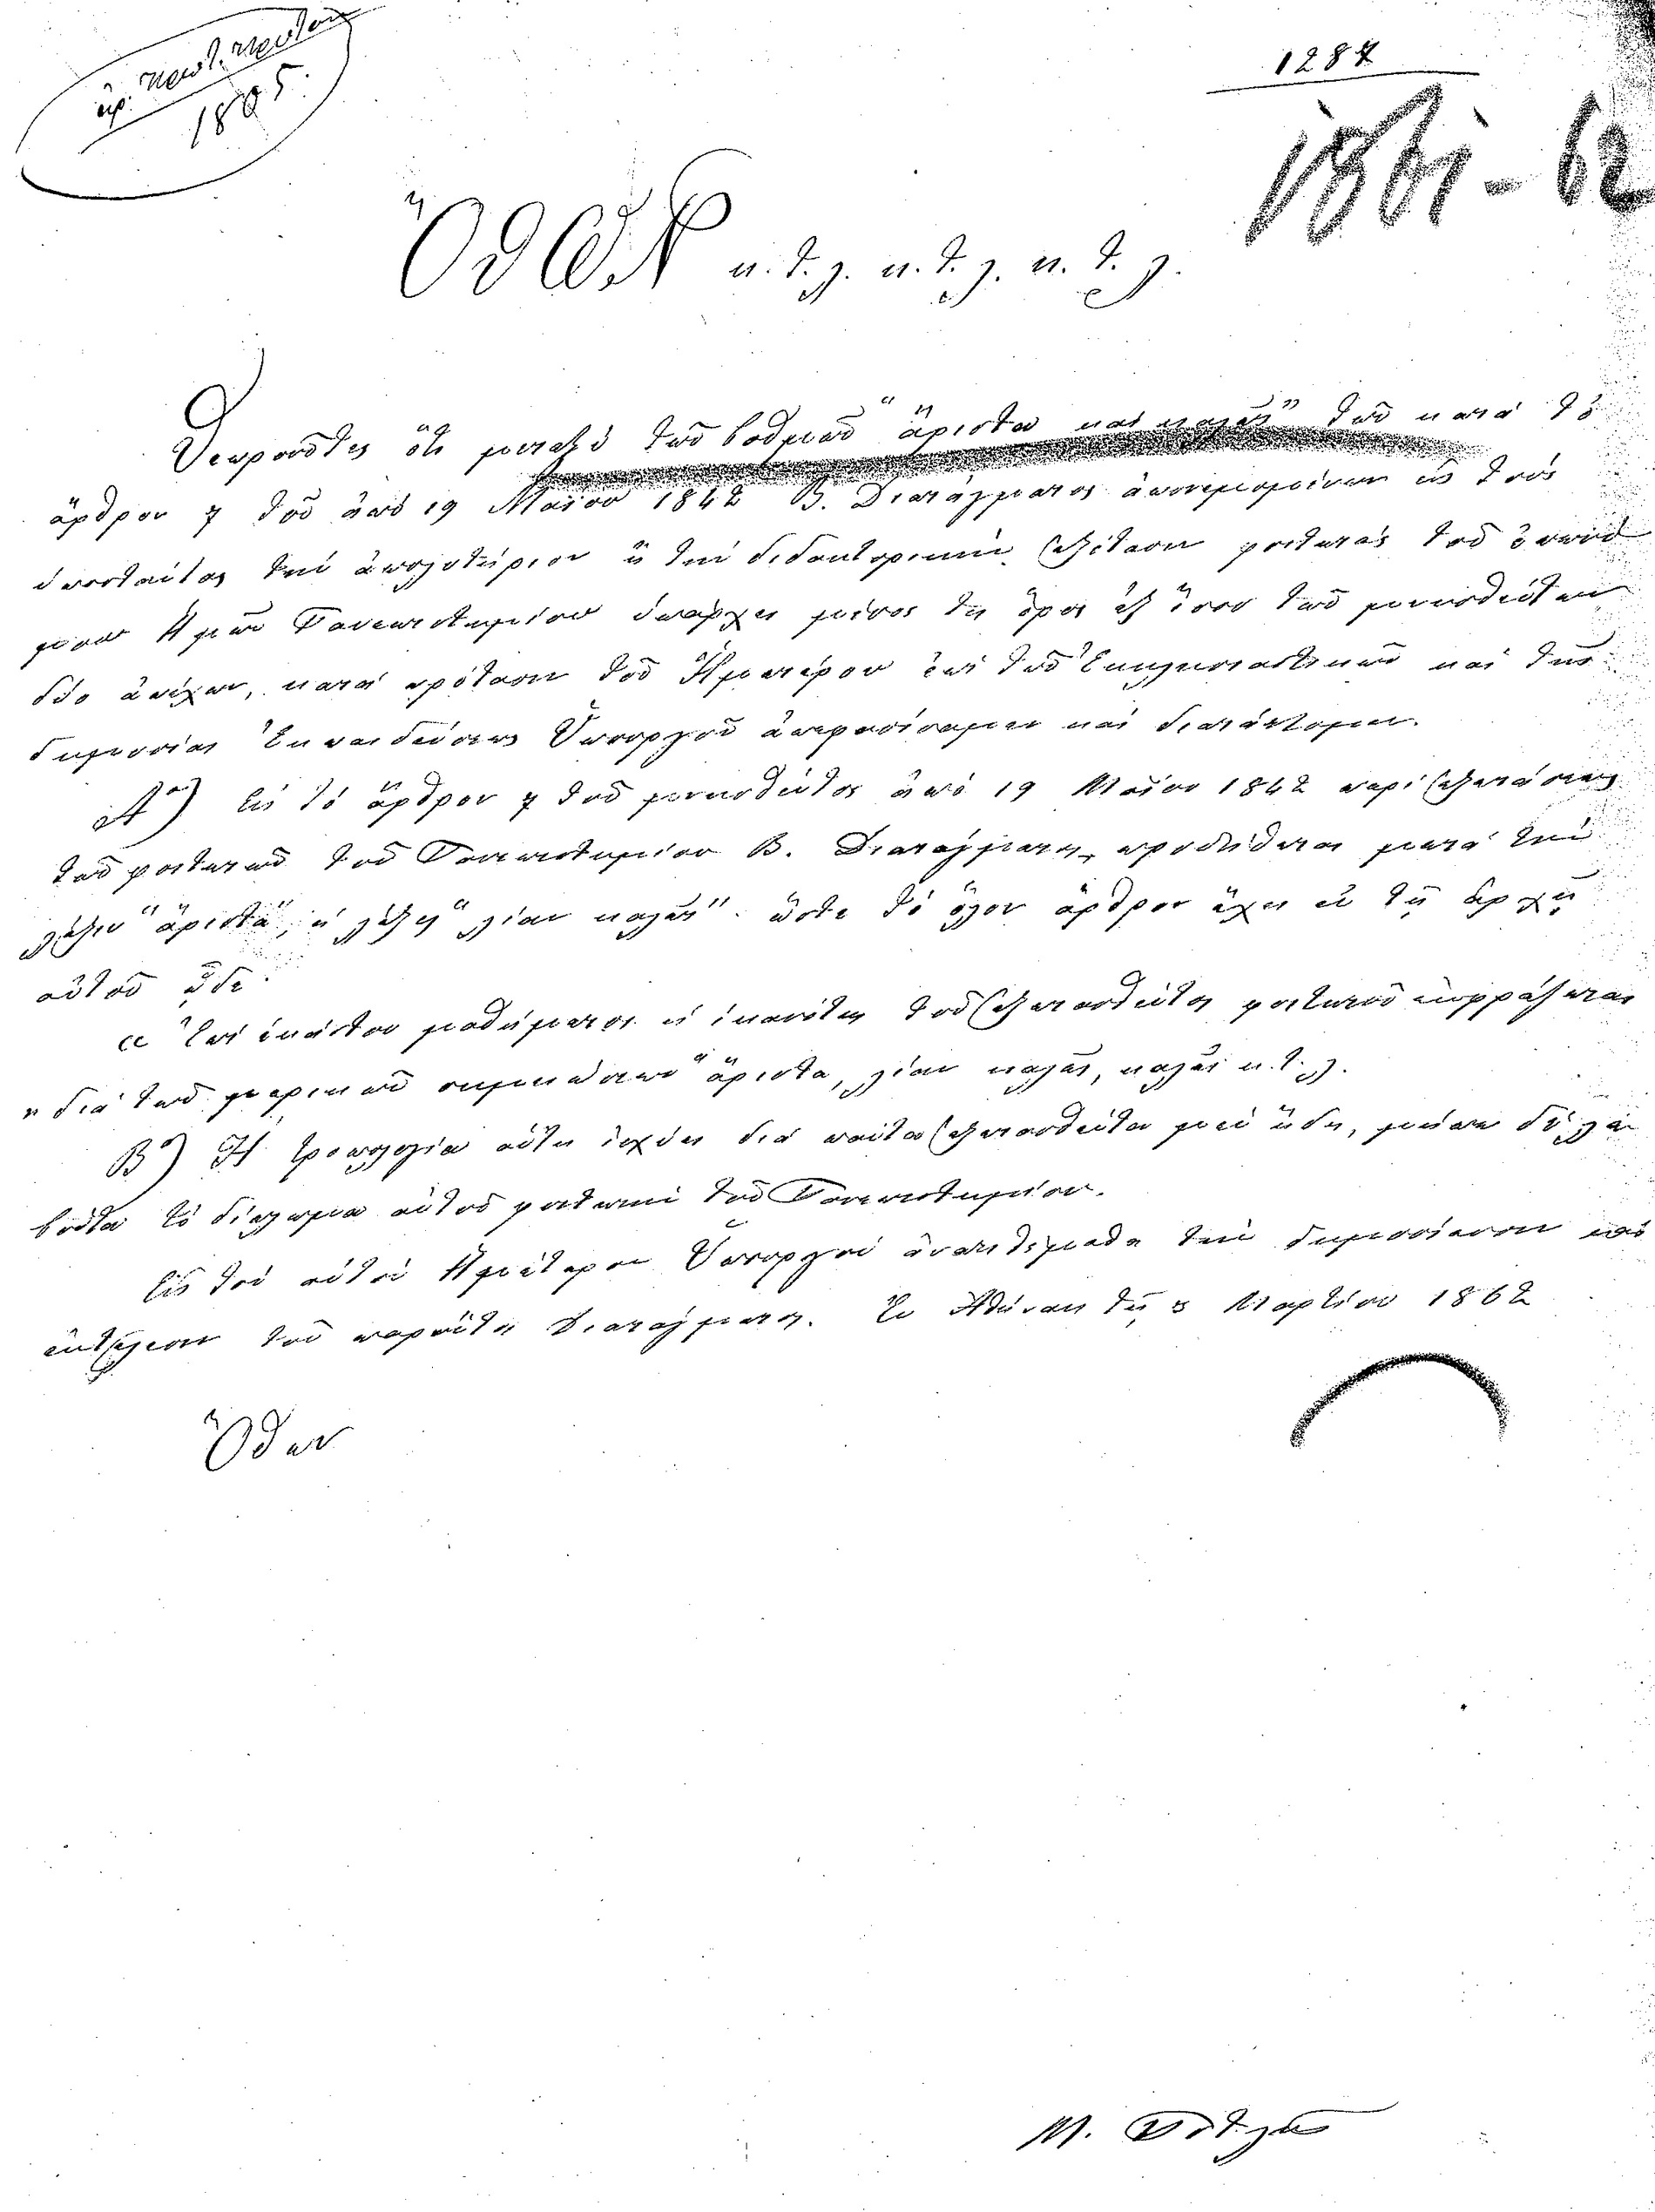 ἀρ. πρωτ.
1805.
1287
1861-62
ὌΘΩΝ κ.τ.λ. κ.τ.λ. κ.τ.λ.
Θεωροῦντες ὅτι μεταξὺ τῶν βαθμῶν "ἄριστα καὶ καλῶς" τῶν κατὰ τὸ
ἄρθρον 7 τοῦ ἀπὸ 19 Μαΐου 1842 Β. Διατάγματος ἀπονεμομένων εἰς τοὺς
ὑποστάντας τὴν ἀπολυτήριον ἢ τὴν διδακτορικὴν ἐξέτασιν φοιτητὰς τοῦ ἐπωνύ
μου Ἡμῶν Πανεπιστημίου ὑπάρχει μέσος τις ὅρος ἐξ ἴσου τῶν μνησθέντων
δύο ἀπέχων, κατὰ πρότασιν τοῦ Ἡμετέρου ἐπὶ τῶν Ἐκκλησιαστικῶν καὶ τῆς
δημοσίας Ἐκπαιδεύσεως Ὑπουργοῦ ἀπεφασίσαμεν καὶ διατάττομεν.
Α) Εἰς τὸ ἄρθρον 7 τοῦ μνησθέντος ἀπὸ 19 Μαΐου 1842 περὶ ἐξετάσεως
τῶν φοιτητῶν τοῦ Πανεπιστημίου Β. Διατάγματος προστίθεται μετὰ τὴν
λέξιν "ἄριστα", ἡ λέξις "λίαν καλῶς" ὥστε τὸ ὅλον ἄρθρον ἔχει ἐν τῇ ἀρχῇ
αὐτοῦ ὧδε·
« Ἐπὶ ἑκάστου μαθήματος ἡ ἱκανότης τοῦ ἐξετασθέντος φοιτητοῦ ἐκφράζεται
» διὰ τῶν μερικῶν σημειώσεων "ἄριστα, λίαν καλῶς, καλῶς κ.τ.λ.
Β) Ἡ τροπολογία αὕτη ἰσχύει διὰ πάντα ἐξετασθέντα μὲν ἤδη, μήπω δὲ λα
βόντα τὸ δίπλωμα αὐτοῦ φοιτητὴν τοῦ Πανεπιστημίου.
Εἰς τὸν αὐτὸν Ἡμέτερον Ὑπουργὸν ἀνατίθεμεθα τὴν δημοσίευσιν καὶ
ἐκτέλεσιν τοῦ παρόντος Διατάγματος. Ἐν Ἀθήναις τῇ 3 Μαρτίου 1862
Ὄθων
Μ. Πότλης